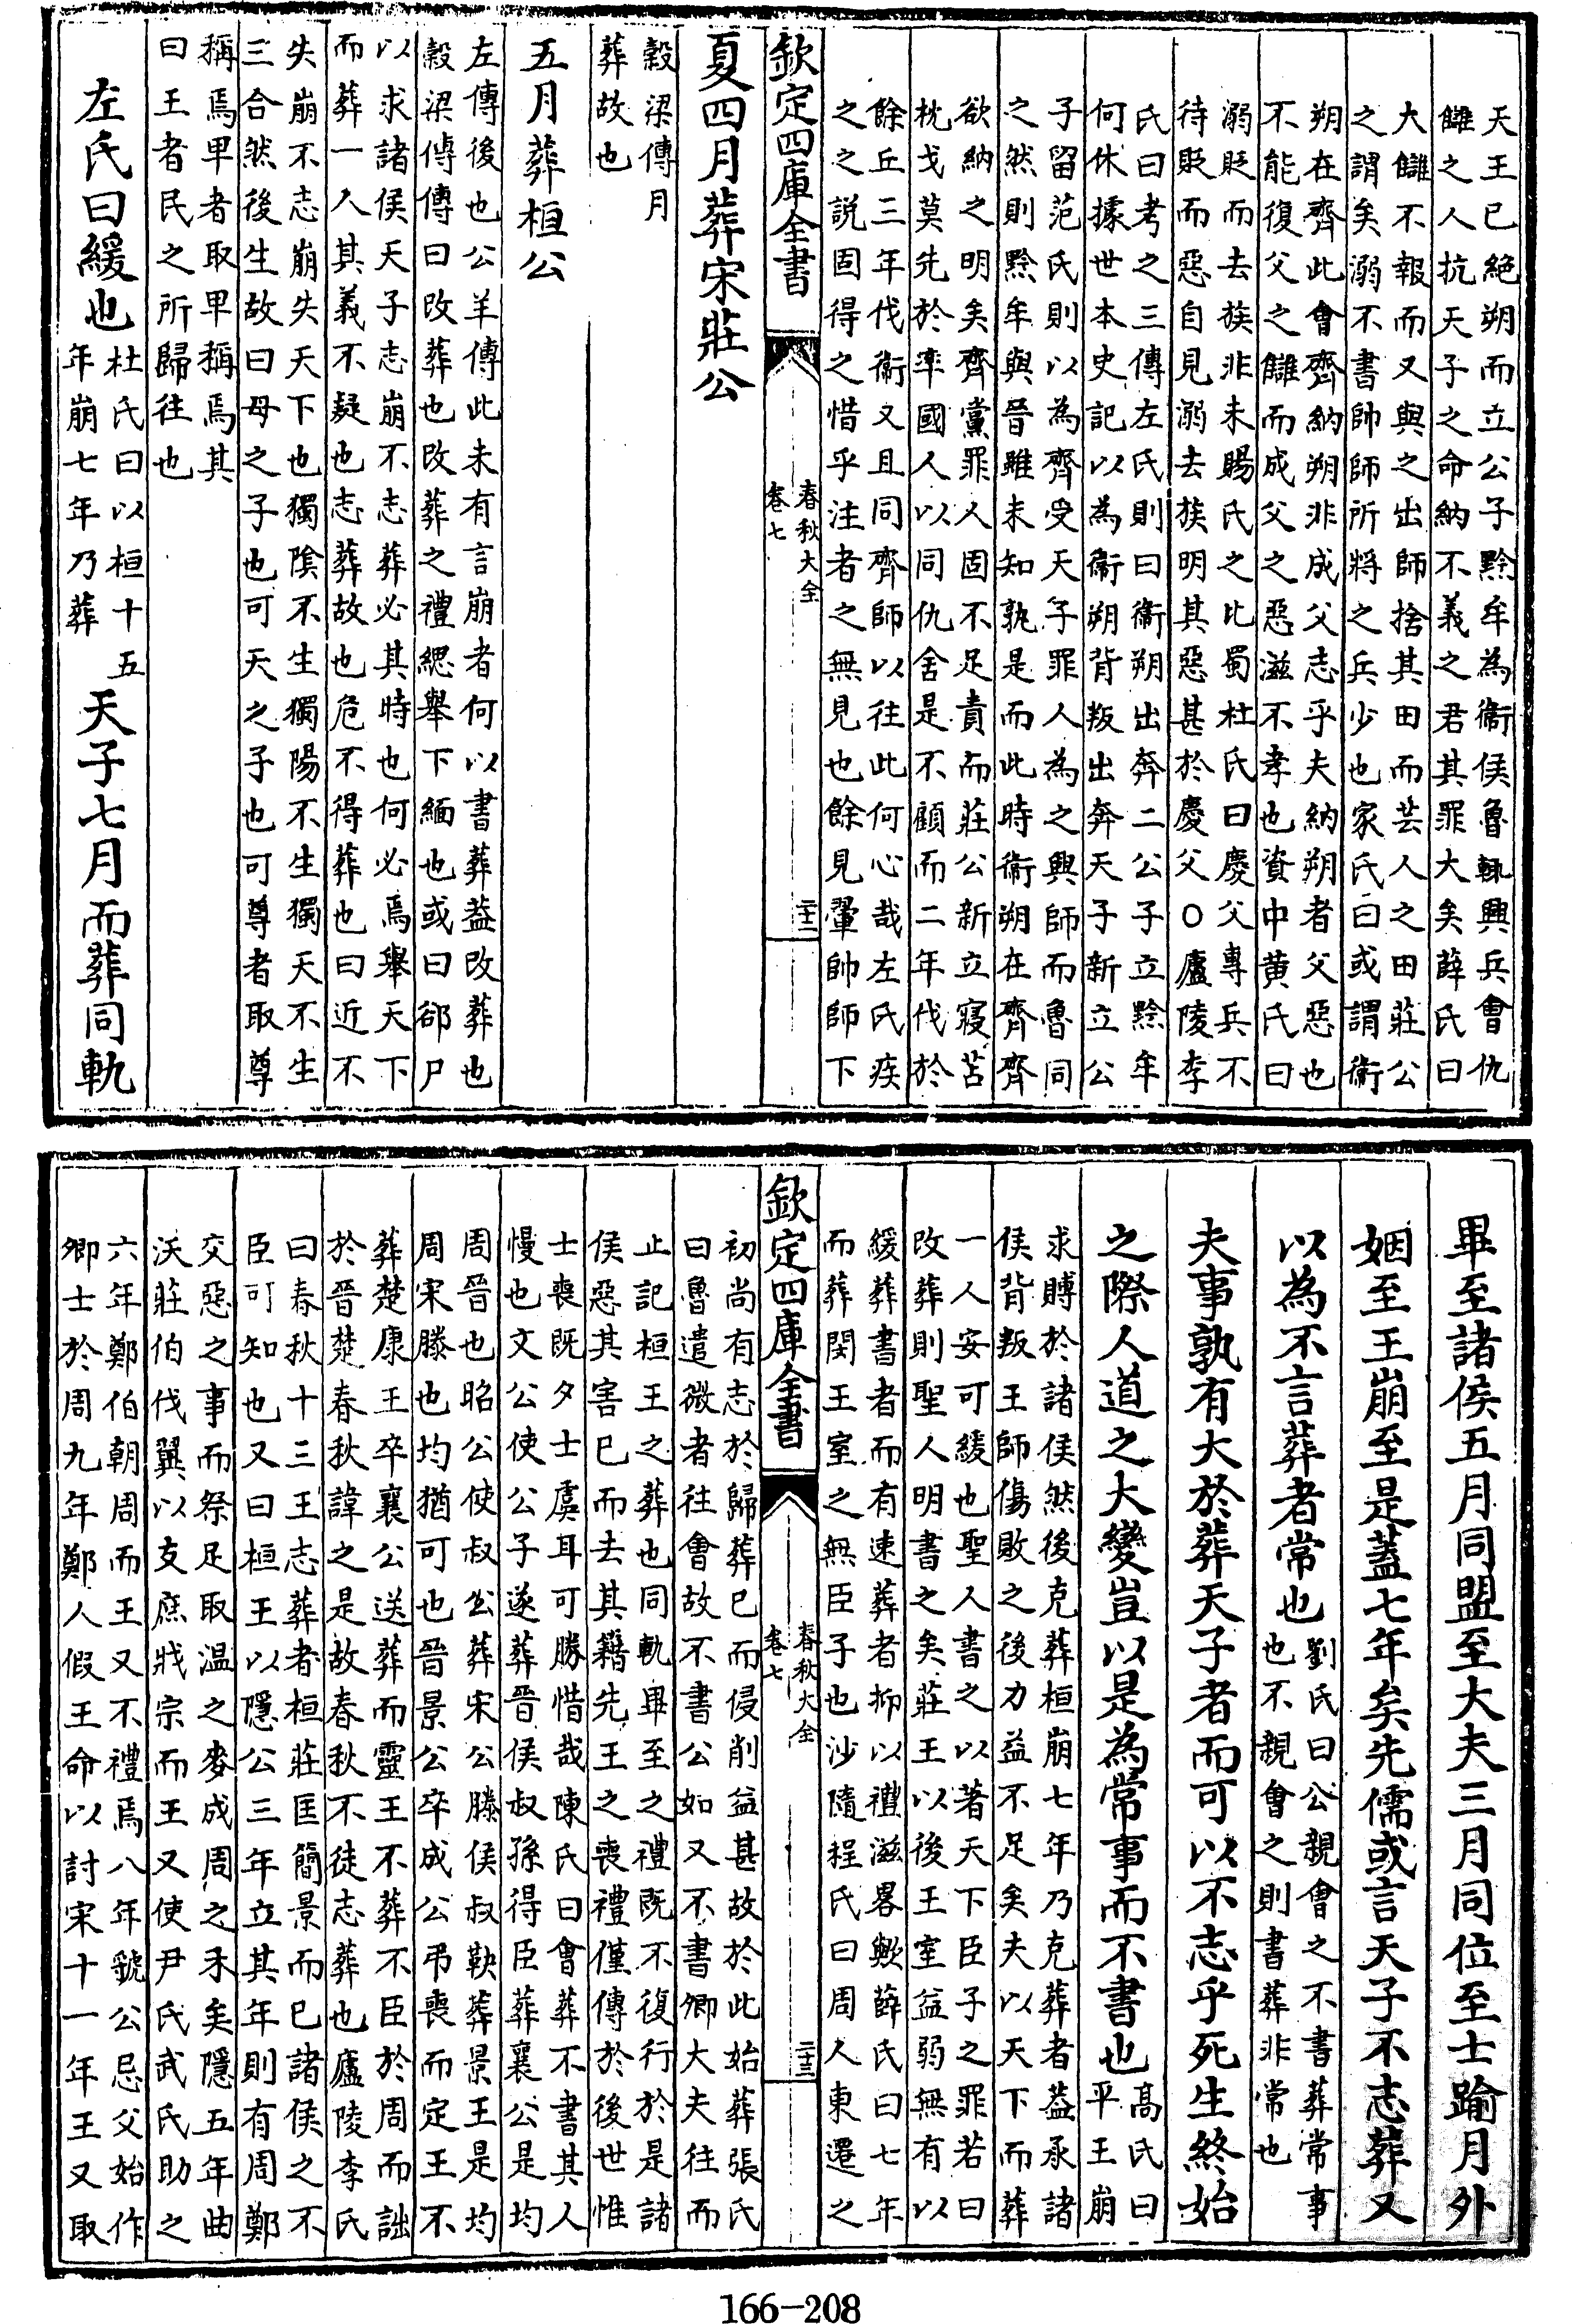 天王已絕朔而立公子黔牟為衞侯魯𫐓興兵會仇
讎之人抗天子之命納不義之君其罪大矣薛氏曰
大讎不報而又與之出師捨其田而芸人之田莊公
之謂矣溺不書帥師所將之兵少也家氏曰或謂衞
朔在齊此會齊納朔非成父志乎夫納朔者父惡也
不能復父之讎而成父之惡滋不孝也資中黄氏曰
溺貶而去族非未賜氏之比蜀杜氏曰慶父專兵不
待貶而惡自見溺去族明其惡甚於慶父○廬陵李
氏曰考之三傳左氏則曰衞朔出奔二公子立黔牟
何休據世本史記以為衞朔背叛出奔天子新立公
子留范氏則以為齊受天子罪人為之興師而魯同
之然則黔牟與晉雖未知孰是而此時衞朔在齊齊
欲納之明矣齊黨罪人固不足責而莊公新立寢苫
枕戈莫先於率國人以同仇舍是不顧而二年伐於
餘丘三年伐衞又且同齊師以往此何心哉左氏疾
之之説固得之惜乎注者之無見也餘見翬帥師下
欽定四庫全書
春秋大全
卷七
二十二
夏四月葬宋莊公
穀梁傳月
葬故也
五月葬桓公
左傳後也公羊傳此未有言崩者何以書葬葢改葬也
穀梁傳傳曰改葬也改葬之禮緦舉下緬也或曰郤尸
以求諸侯天子志崩不志葬必其時也何必焉舉天下
而葬一人其義不疑也志葬故也危不得葬也曰近不
失崩不志崩失天下也獨陰不生獨陽不生獨天不生
三合然後生故曰母之子也可天之子也可尊者取尊
稱焉卑者取卑稱焉其
曰王者民之所歸往也
左氏曰緩也杜氏曰以桓十五年崩七年乃葬天子七月而葬同軌
畢至諸侯五月同盟至大夫三月同位至士踰月外
姻至王崩至是蓋七年矣先儒或言天子不志葬又
以為不言葬者常也劉氏曰公親會之不書葬常事也不親會之則書葬非常也
夫事孰有大於葬天子者而可以不志乎死生終始
之際人道之大變豈以是為常事而不書也髙氏曰平王崩
求賻於諸侯然後克葬桓崩七年乃克葬者葢承諸
侯背叛王師傷敗之後力益不足矣夫以天下而葬
一人安可緩也聖人書之以著天下臣子之罪若曰
改葬則聖人明書之矣莊王以後王室益弱無有以
緩葬書者而有速葬者抑以禮滋畧歟薛氏曰七年
而葬閔王室之無臣子也沙隨程氏曰周人東遷之
欽定四庫全書
春秋大全
卷七
二十三
初尚有志於歸葬已而侵削益甚故於此始葬張氏
曰魯遣微者往會故不書公如又不書卿大夫往而
止記桓王之葬也同軌畢至之禮既不復行於是諸
侯惡其害已而去其籍先王之喪禮僅傳於後世惟
士喪既夕士虞耳可勝惜哉陳氏曰會葬不書其人
慢也文公使公子遂葬晉侯叔孫得臣葬襄公是均
周晉也昭公使叔公葬宋公滕侯叔鞅葬景王是均
周宋滕也均猶可也晉景公卒成公弔喪而定王不
葬楚康王卒襄公送葬而靈王不葬不臣於周而詘
於晉楚春秋諱之是故春秋不徒志葬也廬陵李氏
曰春秋十三王志葬者桓莊匡簡景而已諸侯之不
臣可知也又曰桓王以隱公三年立其年則有周鄭
交惡之事而祭足取温之麥成周之禾矣隱五年曲
沃莊伯伐翼以支庶戕宗而王又使尹氏武氏助之
六年鄭伯朝周而王又不禮焉八年虢公忌父始作
卿士於周九年鄭人假王命以討宋十一年王又取
166-208